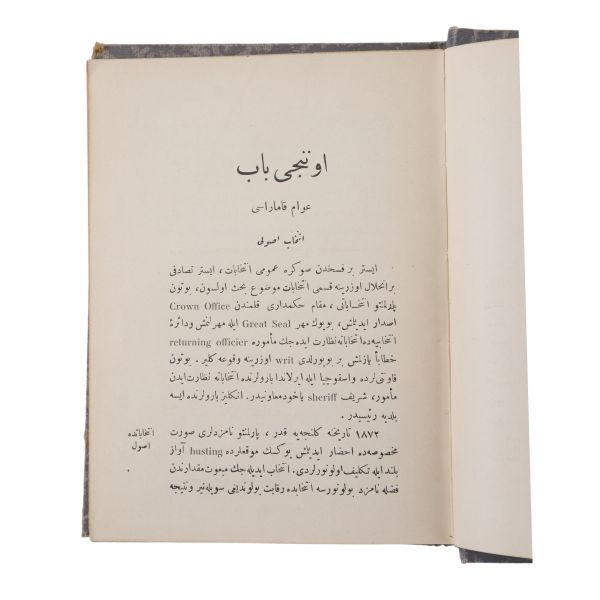 اوننجی باب
عوام قاماراسی
انتخاب اصولی
ایستر بر فسخدن صوکره عمومی انتخابات ، ایستر تصادفی
بر انحلال اوزرینه قسمی انتخابات موضوع بحث اولسون ، بوتون
پارلمنتو انتخاباتی ، مقام حکمداری قلمندن Crown Office
اصدار ایدیلمش ، بویوك مهر Great Seal ایله مهرلنمش ودائرهٔ
انتخابیه ده انتخاباته نظارت ایده جك مأموره returning officier
خطاباً یازلمش بر بویورلدی writ اوزرینه وقوعه کلیر . بوتون
قاونتی لرده واسقوچیا ایله ایرلاندا بارولرنده انتخاباته نظارت ایدن
مأمور ، شریف sheriff یاخود معاونیدر . انکلیز بارولرنده ایسه
بلدیه رئیسیدر .
۱۸۷۲ تاریخنه کلنجه یه قدر ، پارلمنتو نامزدلری صورت
انتخاباتده
اصول
مخصوصه ده احضار ایدیلمش یوکسك موقعلرده husting آواز
بلند ایله تکلیف اولونورلردی . انتخاب ایدیله جك مبعوث مقدارندن
فضله نامزد بولونورسه انتخابده رقابت بولوندیغی سویله نیر ونتیجه